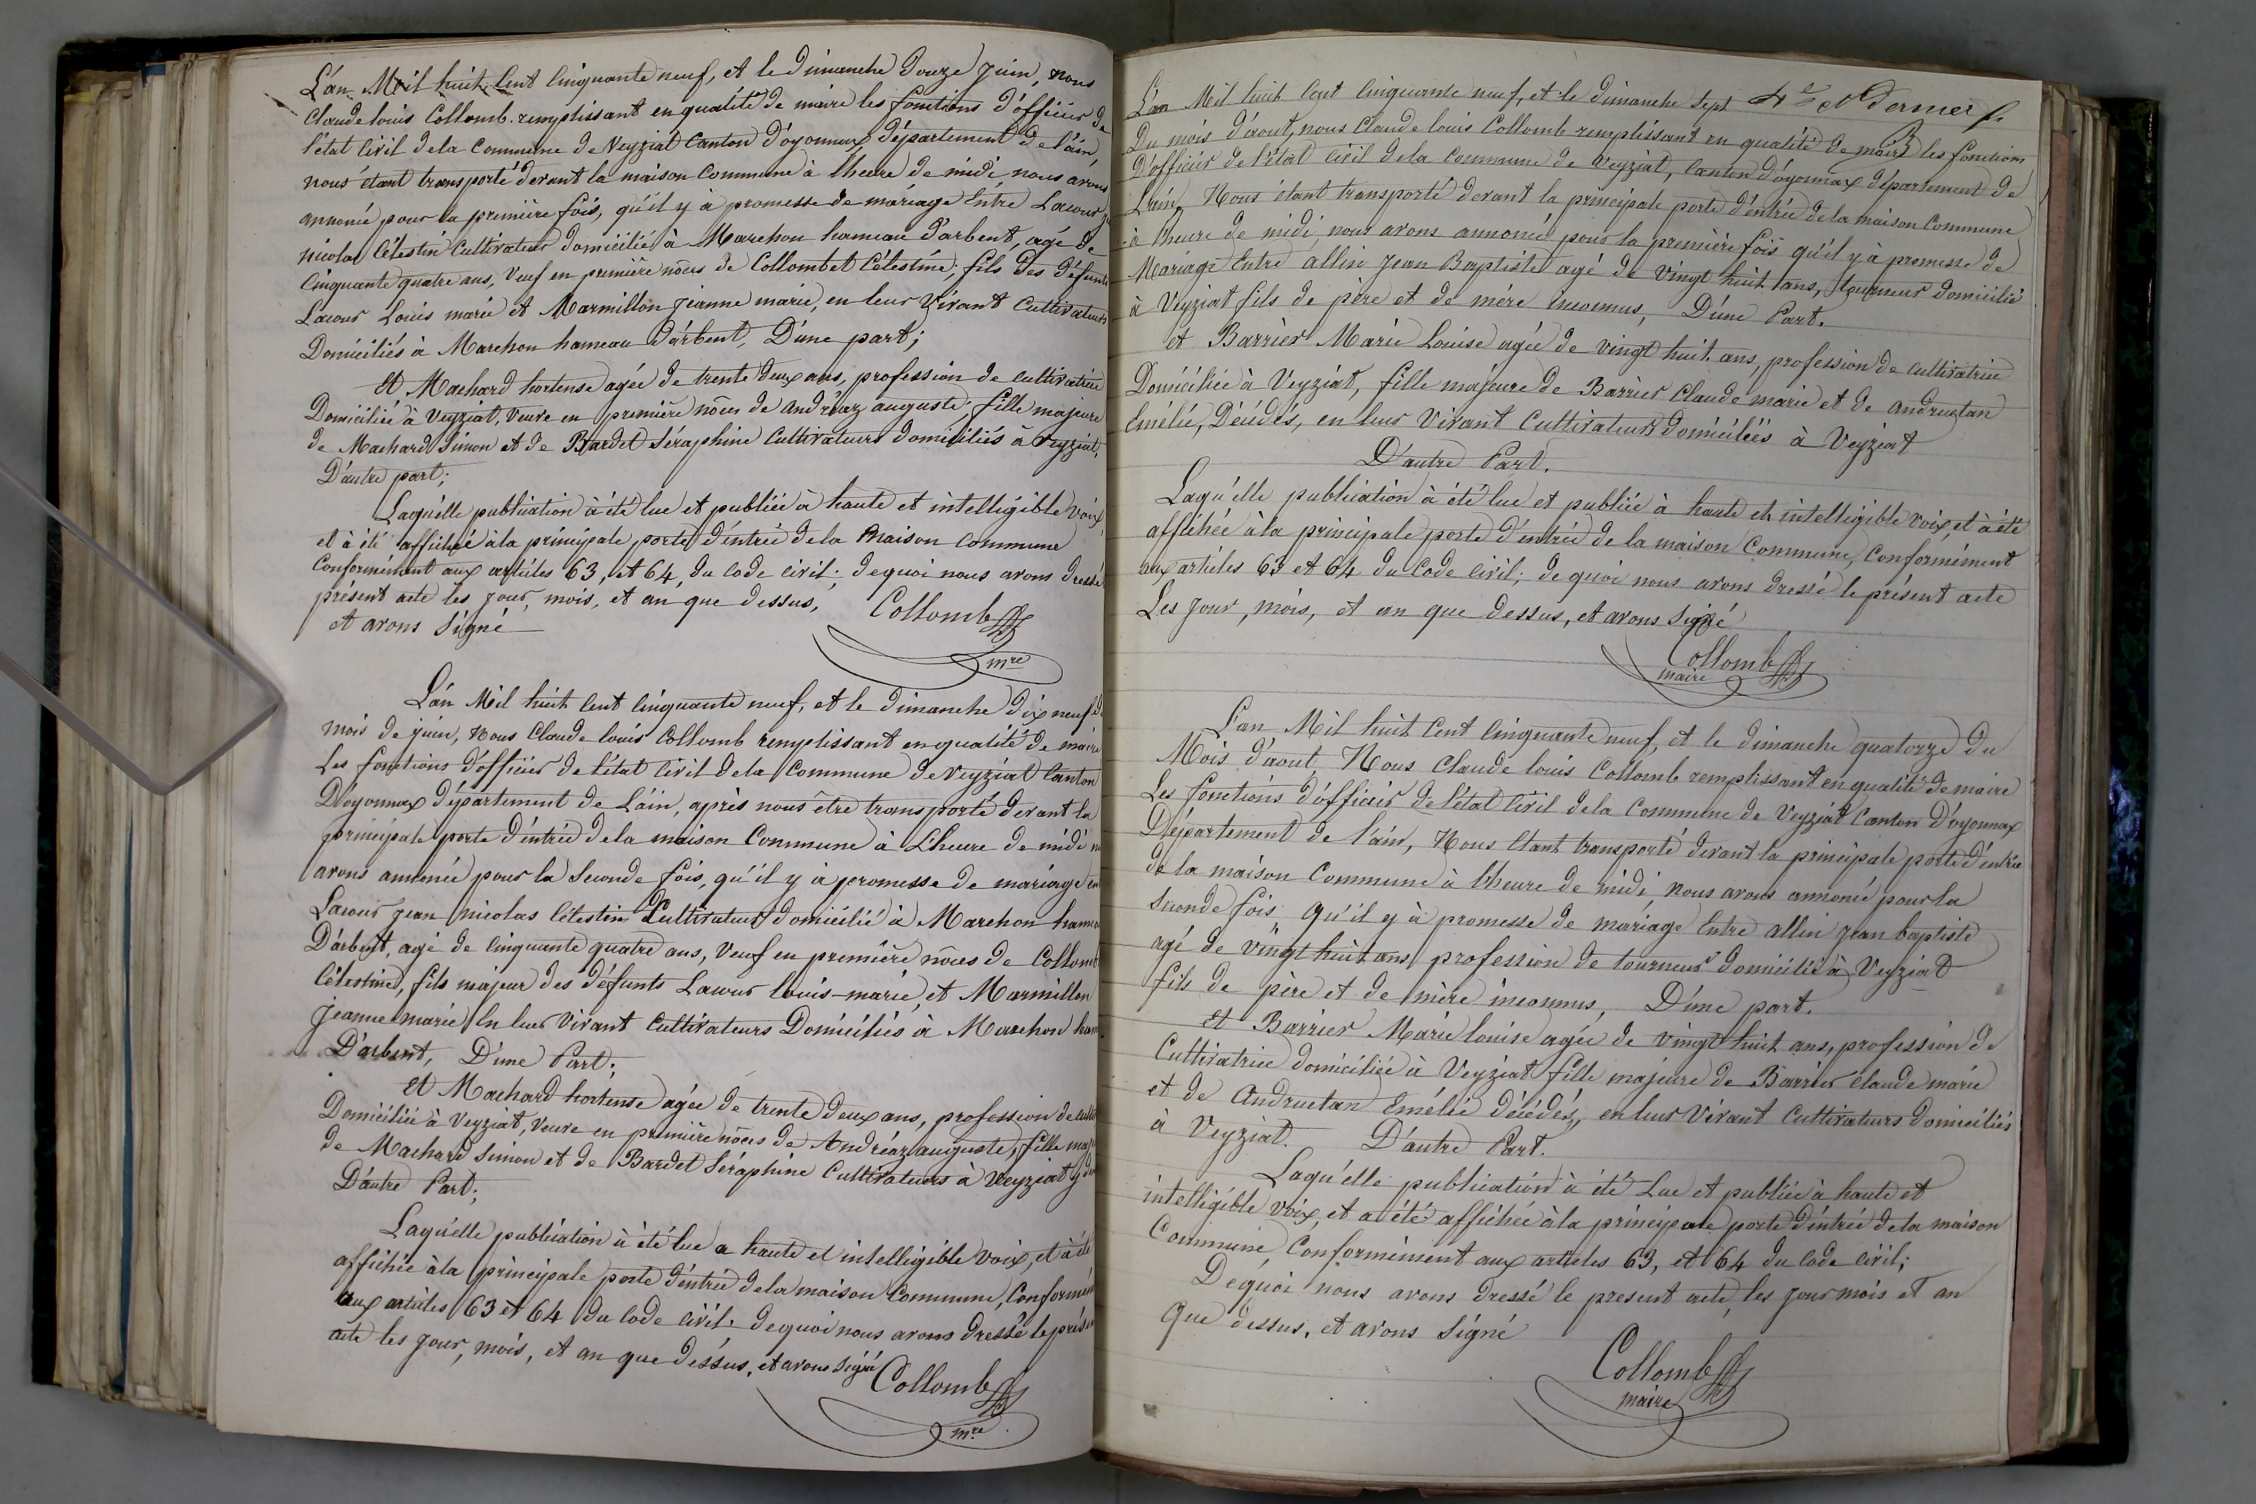 L'án Mil huit Cent Cinquante neuf, et le dimanche douze Juin, nous
Claude louis Collomb remplissant en qualité de maire les fonctions d'officier de
l'état Civil dela Commune de Veyziat Canton d'óyonnax département de l'áin,
nous étant transporté devant la maison Commune à lheure de midi nous avons
annoncé pour la première fois, qu'il y à promesse de máriage Entre Lacour
nicolas Célestin Cultivateur domicilié à Marchon hameau d'arbent, agé de
Cinquante quatre ans, Veuf en première nôces de Collombet Célestine; fils des défunts
Lacour Louis marie et Marmillon Jeanne marie, en leur Vivant Cultivateurs
Domiciliés à Marchon hameau d'árbent, D'une part;
Et Machard hortense agée de trente deux ans, profession de cultivatrice
Domiciliée à Veyziat, Veuve en première nôces de Andréaz auguste; fille majeure
de Machard Simon et de Bardet Séraphine Cultivateurs domiciliés à Veyziat,
D'autre part;
Laquélle publication à été lue et publiée à haute et intelligible voix,
et à été affichée àla principale porte d'éntrée dela Maison Commune
Conformément aux articles 63, et 64, du Code Civil; dequoi nous avons dressé
présent acte les jour, mois, et an que dessus,
et avons Signé
Collomb
mre
L'án Mil huit Cent Cinquante neuf, et le dimanche dix neuf du
mois de juin, nous Claude louis Collomb remplissant en qualité de maire
Les fonctions d'officier de l'état Civil dela Commune de Veyziat Canton
D'óyonnax département de L'áin, après nous être transporté devant la
principale porte d'éntrée dela maison Commune à Lheure de midi
avons annoncé pour la Seconde fois, qu'il y à promesse de mariage
Lacour Jean nicolas Célestin Cultivateur domicilié à Marchon
D'árbent, agé de Cinquante quatre ans, Veuf en première nôces de
Célestine, fils majeur des défunts Lacour louis-marie, et Marmillon
Jeanne marie En leur Vivant Cultivateurs Domiciliés à Marchon
D'arbent, D'une Part;
Et Machard hortense agée de trente deux ans, profession de
Domiciliée à Veyziat, Veuve en première nôces de Andréaz auguste; fille
de Machard Simon et de Bardet Séraphine Cultivateurs à Veyziat
D'autre Part;
Laquélle publication à été lue a haute et intelligible Voix, et à été
affichée àla principale porte d'éntrée dela maison Commune,
aux articles 63 et 64 du Code Civil. dequoi nous avons dressé le
acte les jour, mois, et an que dessus, et avons signé
Collomb
mre
4e et Dernier f.
L'an Mil huit Cent Cinquante neuf, et le dimanche Sept
Du mois d'aout, nous Claude louis Collomb remplissant en qualité de maire les fonctions
D'officier de l'état Civil dela Commune de Veyziat, Canton d'óyonnax département de
L'ain, Nous étant transporté devant la principale porte d'éntrée dela maison Commune
à lheure de midi, nous avons annoncé pour la première fois qu'il y à promesse de
Mariage Entre allin Jean Baptiste agé de Vingt huit ans, tourneur domicilié
à Veyziat fils de père et de mère inconnus, D'une Part.
et Barrier Marie Louise agée de vingt huit ans, profession de cultivatrice
Domiciliée à Veyziat, fille majeure de Barrier Claude marie et de andruetan
Emélie, Décédés, en leur Vivant Cultivateurs domiciliés à Veyziat
D'autre Part.
Laqu'élle publication à été lue et publiée à haute et intelligible Voix, et à été
affichée àla principale porte d'éntrée de la maison Commune, Conformément
aux articles 63 et 64 du Code Civil; de quoi nous avons dressé le présent acte
Les jour, mois, et an que dessus, et avons signé
Collomb
maire
L'an Mil huit Cent Cinquante neuf, et le dimanche quatorze du
Mois d'aout, Nous Claude louis Collomb remplissant en qualité de maire
Les fonctions d'officier de l'état Civil dela Commune de Veyziat Canton D'óyonnax
Département de l'ain, Nous Etant transporté devant la principale porte d'éntrée
de la maison Commune à lheure de midi, nous avons annoncé pour la
Seconde fois, qu'il y à promesse de mariage Entre allin Jean baptiste
agé de vingt huit ans, profession de tourneur domicilié à Veyziat
fils de père et de mère inconnus, D'une part.
et Barrier Marie louise agée de vingt huit ans, profession de
Cultivatrice domiciliée à Veyziat fille majeure de Barrier Claude marie
et de Andruetan Emélie décédés, en leur Vivant Cultivateurs domiciliés
à Veyziat. D'autre Part.
Laqu'élle publication à été Lue et publiée à haute et
intelligible voix, et a été affichée àla principale porte d'éntrée dela maison
Commune, Conformément aux articles 63, et 64 du Code Civil;
Dequoi nous avons dressé le présent acte, les jour mois et an
que dessus, et avons Signé
Collomb
maire